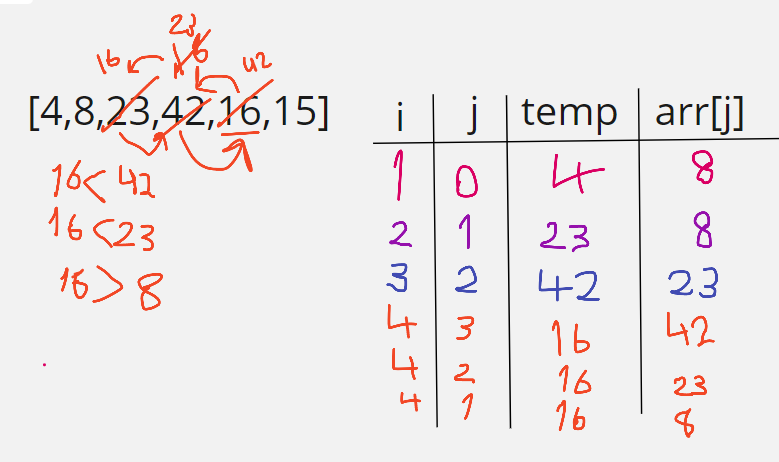 23
16 16 42
[4,8,23,42,16,15]
16<42
16<23
16>8
i j temp arr[j]
1 0 4 8
2 1 23 8
3 2 42 23
4 3 16 42
4 2 16 23
4 1 16 8